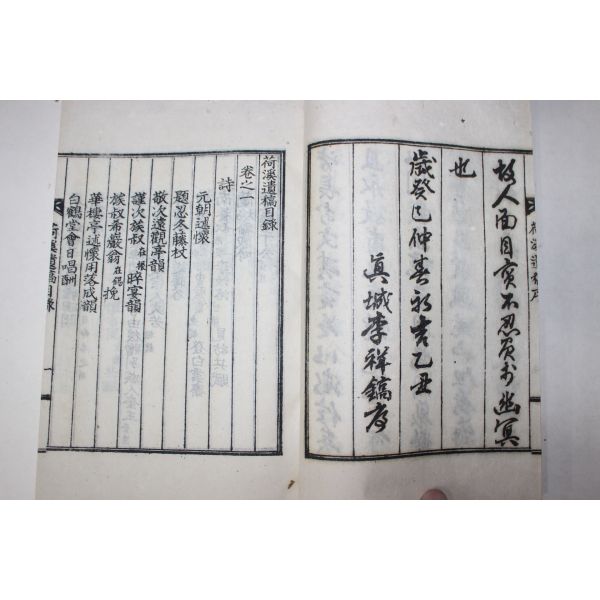 故人面目實不忍負於幽冥
也
歲癸巳仲春初吉乙丑
眞城李祥鎬序
荷溪遺稿目錄
卷之一
詩
元朝述懷
題忍冬藤杖
敬次遠觀亭韻
謹次族叔在禄晬宴韻
族叔希巖翁在錫挽
華樓亭述懷用落成韻
白鶴堂會日唱酬
荷溪遺稿目錄
一